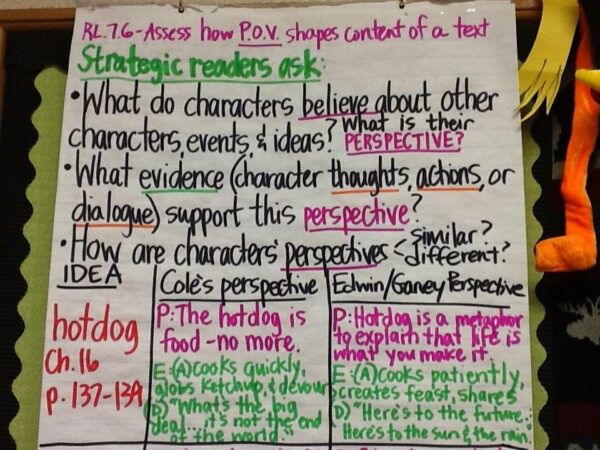 RL.7.6-Assess how P.O.V. shapes content of a text
Strategic readers ask:
•What do characters believe about other
characters, events, & ideas? What is their PERSPECTIVE?
•What evidence (character thoughts, actions, or
dialogue) support this perspective?
•How are characters' perspectives < similar? different?
IDEA
hotdog
Ch. 16
p. 137-139
Cole's perspective
P: The hotdog is
food - no more.
E: (A) Cooks quickly,
globs ketchup & devours
(D) "What's the big
deal... it's not the end
of the world."
Edwin/Garvey Perspective
P: Hotdog is a metaphor
to explain that life is
what you make it.
E: (A) Cooks patiently,
creates feast, shares
(D) "Here's to the future.
Here's to the sun & the rain.